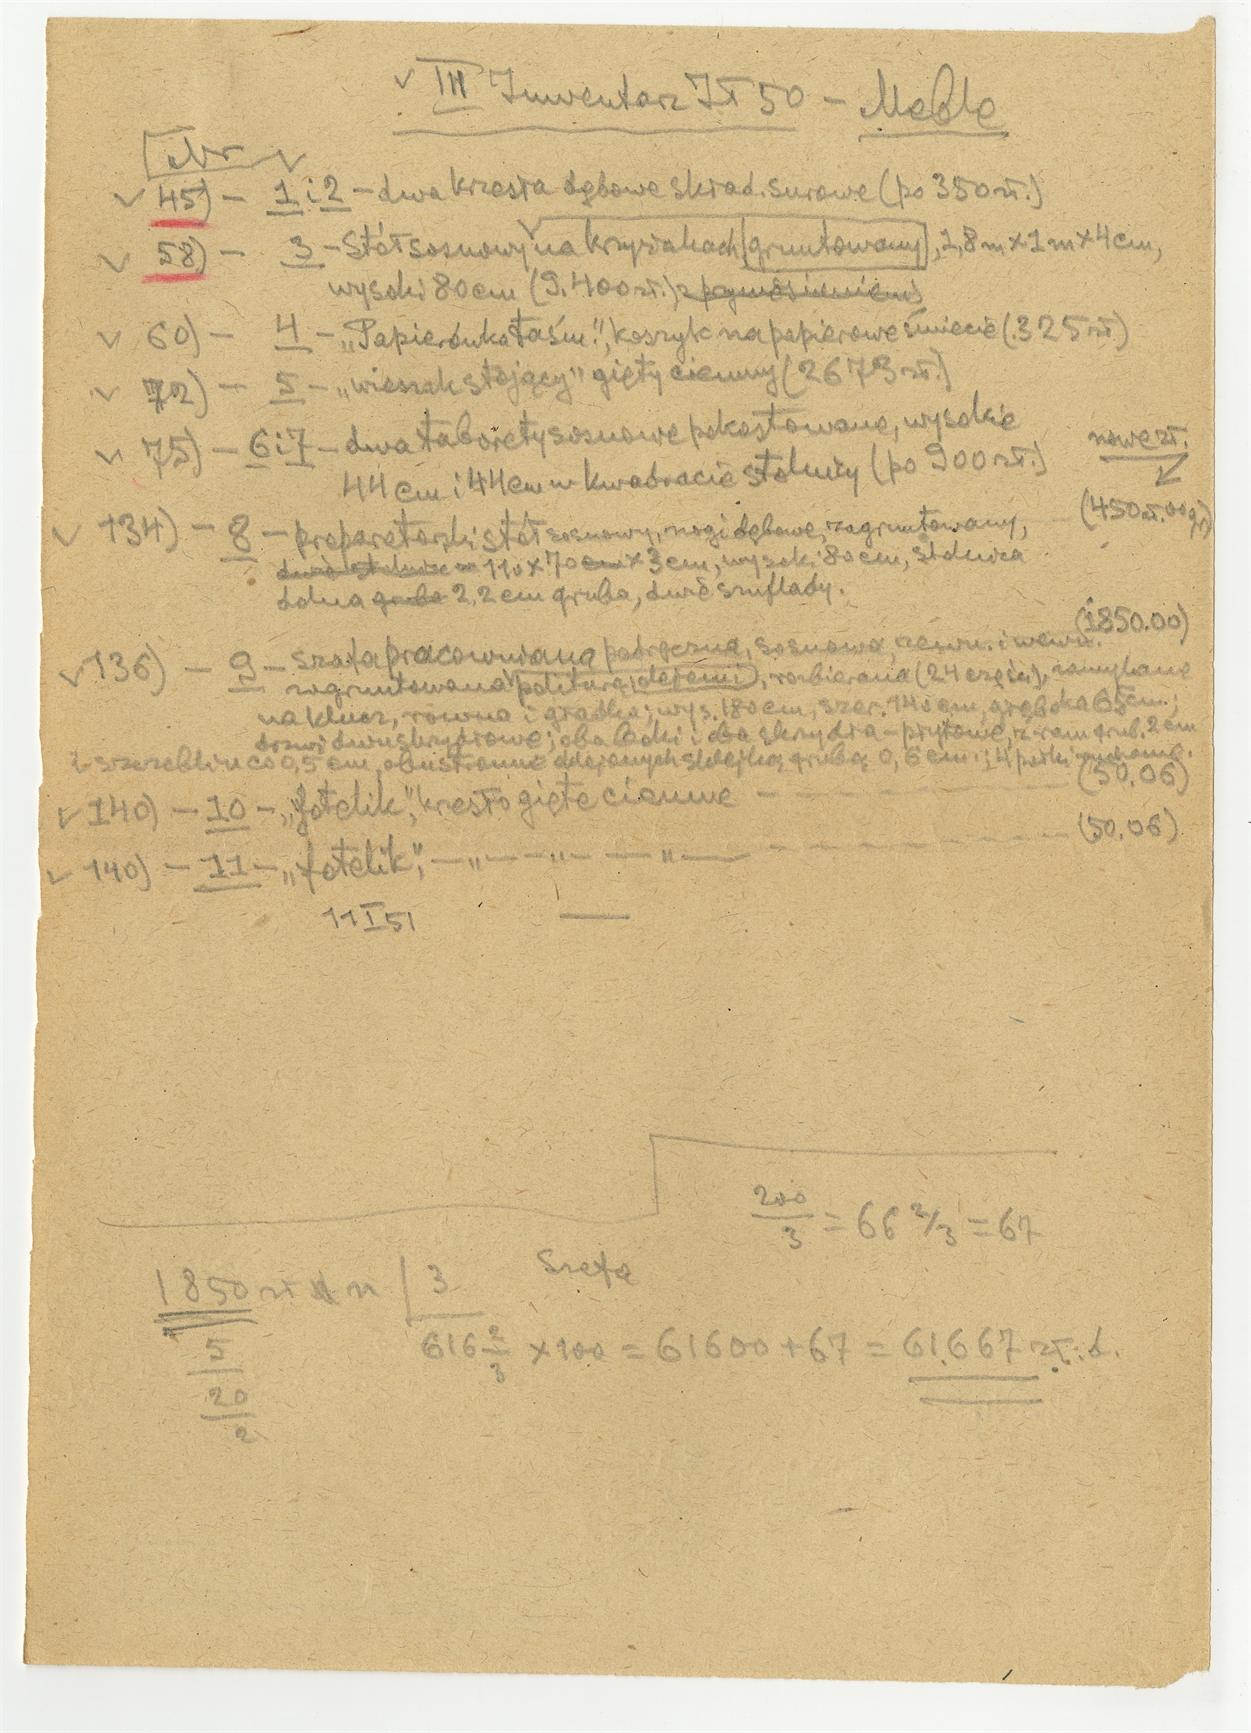 ✓ III Inwentarz IX 50 – Meble
Nr ✓
✓ 45) – 1 i 2 – dwa krzesła dębowe skład. surowe (po 350 zł.)
✓ 58) – 3 – Stół sosnowy na krzyżakach gruntowany, 1,8m × 1m × 4cm,
wysoki 80cm (9.400 zł.)
✓ 60) – 4 – „Papierówka taśm.", koszyk na papierowe śmiecie (325 zł)
✓ 72) – 5 – „wieszak stojący" gięty ciemny (2673 zł.)
✓ 75) – 6 i 7 – dwa taborety sosnowe pokostowane, wysokie
44 cm i 44 cm w kwadracie stolnicy (po 900 zł.)
nowe zł.
✓ 134) – 8 – preparatorski stół sosnowy, nogi dębowe, zagruntowany, – (450 zł. 00 gr)
110 × 70 cm × 3 cm, wysoki 80 cm, stolnica
dolna gruba 2,2 cm gruba, dwie szuflady.
(1850.00)
✓ 136) – 9 – szafa pracowniana podręczna, sosnowa, zewn. i wewn.
zagruntowana politurą, olejami, rozbierana (24 części), zamykana
na klucz, równa i gładka; wys. 180 cm, szer. 140 cm, głęboka 65 cm;
drzwi dwuskrzydłowe; oba boki i oba skrzydła – płytowe, z ram grub. 2 cm
i szczeblin co 0,5 cm, obustronnie oklejonych sklejką grubą 0,6 cm; 4 półki ruchome.
✓ 140) – 10 – „fotelik", krzesło gięte ciemne – – – – (50.06)
✓ 140) – 11 – „fotelik", – „ – – „ – – „ – – – – – (50.06)
11 I 51
200/3 = 66 2/3 = 67
Szafa
1850 zł n | 3
616 2/3 × 100 = 61600 + 67 = 61.667 zł. d.
5
20
2